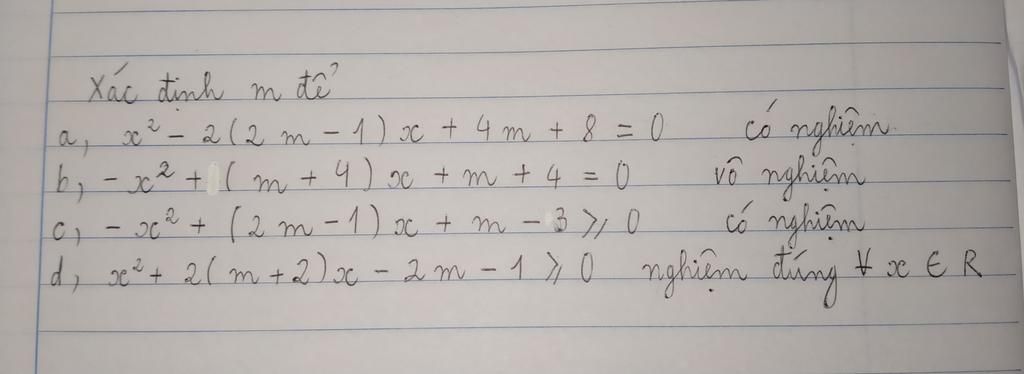 Xác định m để
a, x² - 2(2m - 1)x + 4m + 8 = 0 có nghiệm.
b, - x² + (m + 4)x + m + 4 = 0 vô nghiệm
c, - x² + (2m - 1)x + m - 3 ⩾ 0 có nghiệm
d, x² + 2(m + 2)x - 2m - 1 ⩾ 0 nghiệm đúng ∀ x ∈ R